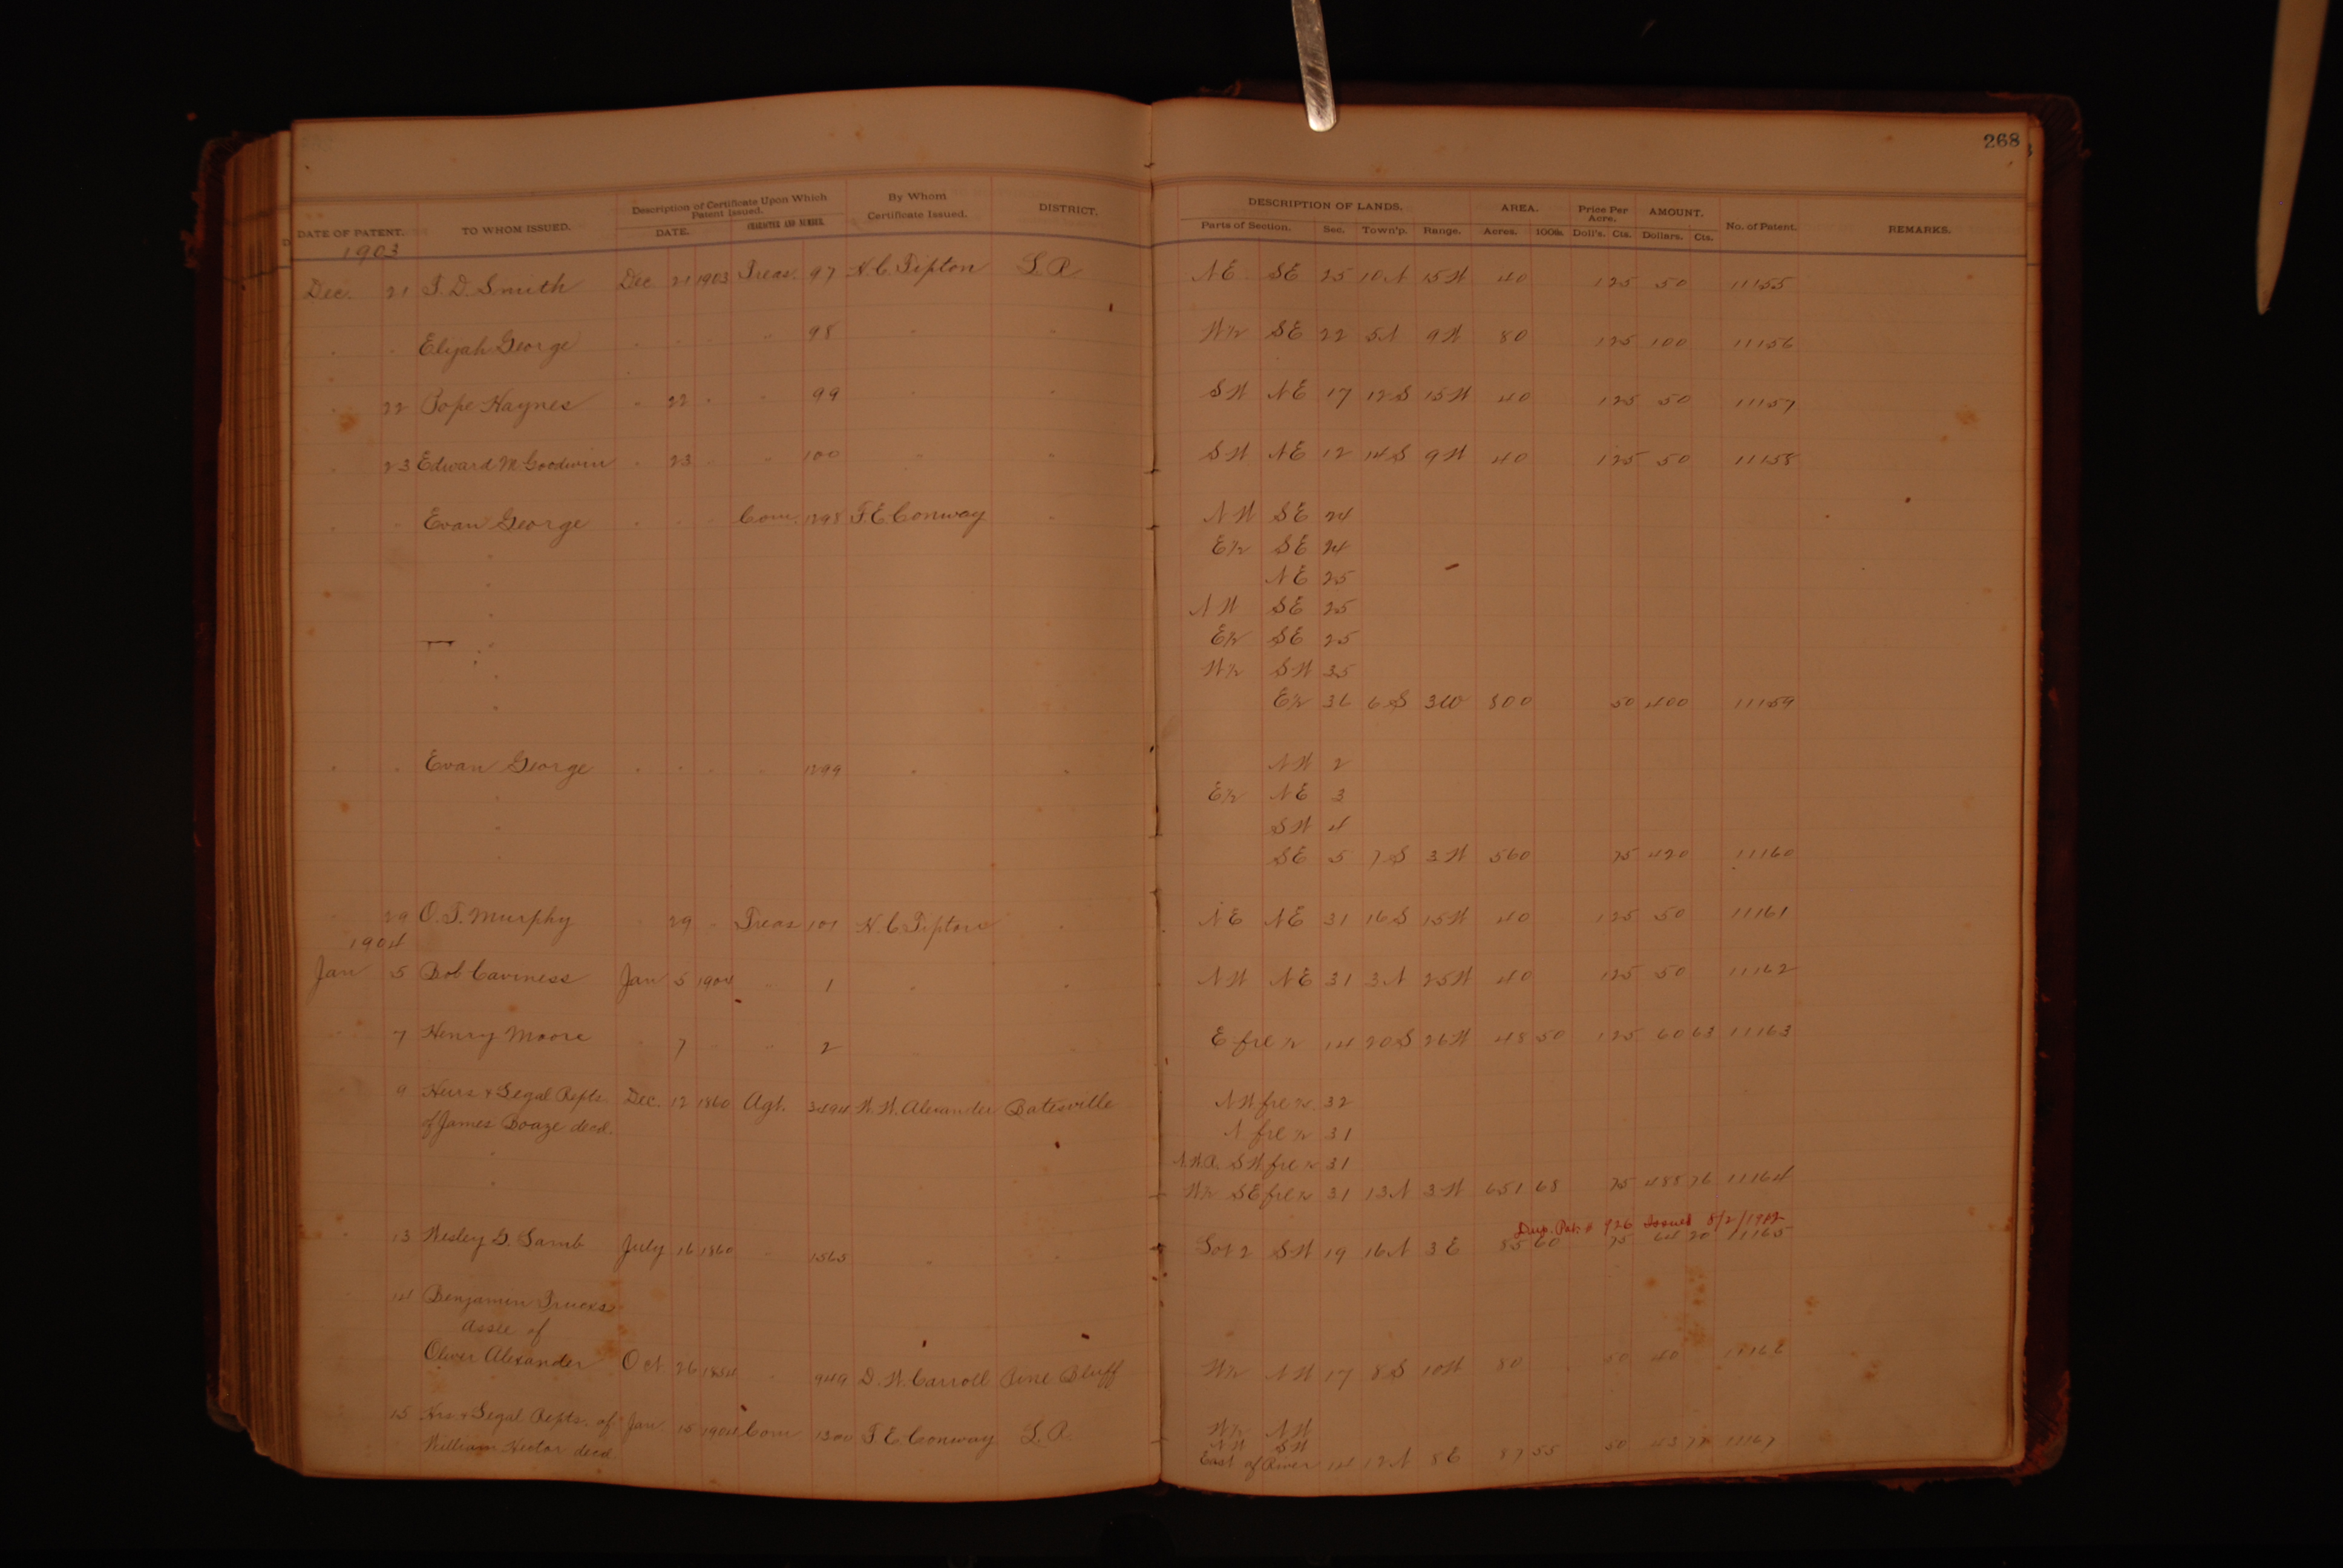 268
DATE OF PATENT. TO WHOM ISSUED. Description of Certificate Upon Which Patent Issued. DATE. CHARACTER AND NUMBER. By Whom Certificate Issued. DISTRICT. DESCRIPTION OF LANDS. Parts of Section. Sec. Town'p. Range. AREA. Acres. 100th. Price Per Acre. Doll's. Cts. AMOUNT. Dollars. Cts. No. of Patent. REMARKS.
1903
Dec. 21 T. D. Smith Dec 21 1903 Treas. 97 H. C. Tipton L. R NE SE 25 10 N 15 W 40 1 25 50 11155
" " Elijah George " " " " 98 " " W½ SE 22 5 N 9 W 80 1 25 100 11156
" 22 Pope Haynes " 22 " " 99 " " SW NE 17 12 S 15 W 40 1 25 50 11157
" 23 Edward M. Goodwin " 23 " " 100 " " SW NE 12 14 S 9 W 40 1 25 50 11158
" " Evan George " " " Com. 1298 T. E. Conway " NW SE 24
" E½ SE 24
" NE 25
" NW SE 25
" E½ SE 25
" W½ SW 35
" E½ 36 6 S 3 W 800 50 400 11159
" " Evan George " " " " 1299 " " NW 2
" E½ NE 3
" SW 4
" SE 5 7 S 3 W 560 75 420 11160
" 29 O. T. Murphy " 29 " Treas 101 H. C. Tipton " NE NE 31 16 S 15 W 40 1 25 50 11161
1904
Jan 5 Bob Caviness Jan 5 1904 " 1 " " NW NE 31 3 N 25 W 40 1 25 50 11162
" 7 Henry Moore " 7 " " 2 " " E frl ½ 14 20 S 26 W 48 50 1 25 60 63 11163
" 9 Heirs & Legal Repts. Dec. 12 1860 Agt. 3494 W. W. Alexander Batesville NW frl ¼ 32
of James Boaze decd. N frl ½ 31
" N.W.R. SW frl ¼ 31
" W½ SE frl ¼ 31 13 N 3 W 651 68 75 488 76 11164
Dup. Pat. # 926 Issued 8/2/1912
" 13 Wesley G. Lamb July 16 1860 " 1565 " " Lot 2 SW 19 16 N 3 E 85 60 75 64 20 11165
14 Benjamin
Assee of
Oliver Alexander Oct. 26 1854 " 949 D. W. Carroll Pine Bluff W½ NW 17 8 S 10 W 80 50 40 11166
" 15 Hrs & Legal Repts. of Jan 15 1904 Com 1300 T. E. Conway L. R. W½ NW
William Hector decd. NW SW
East of River 14 12 N 8 E 87 55 50 43 78 11167